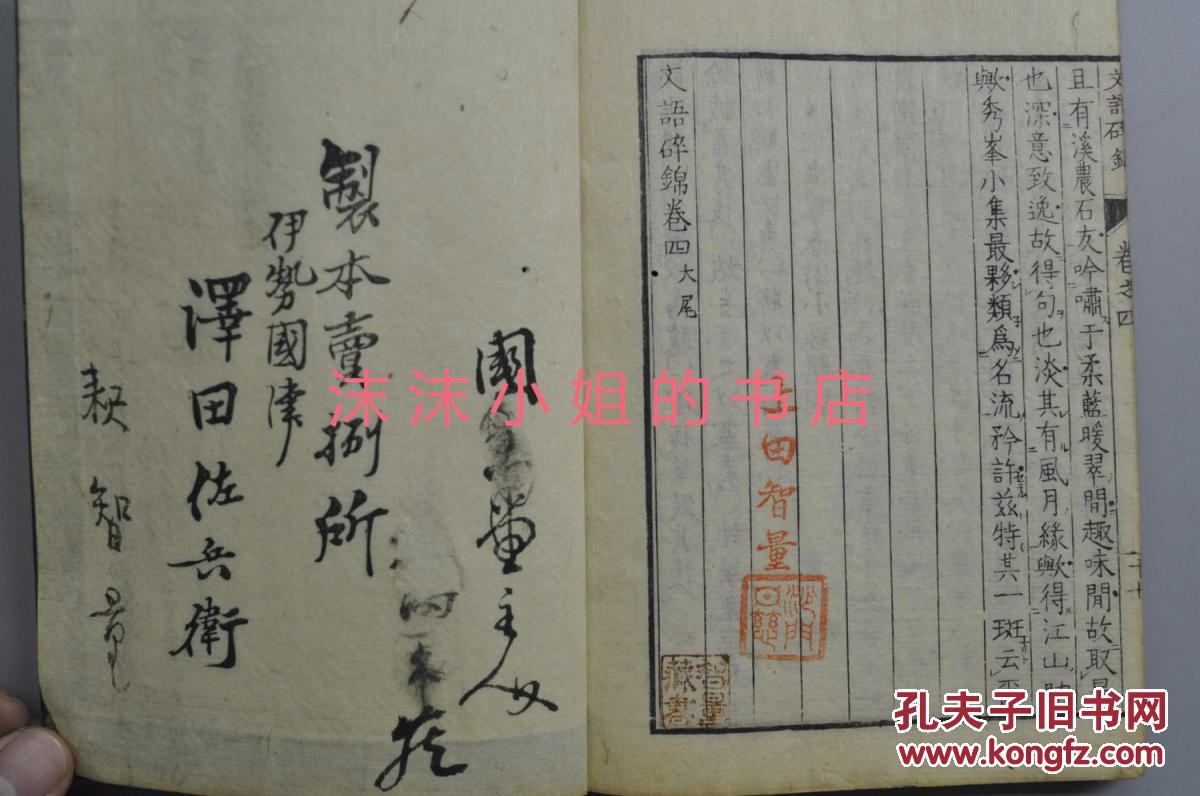 文語碎錦
卷之四
二十七
且有溪農石友吟嘯于柔藍暖翠間趣味閒故取
也深意致逸故得句也淡其有風月緣歟得江山
歟秀峯小集最夥類爲名流矜許兹特其一斑云
文語碎錦卷四大尾
田智量
沙門
智量
藏書
主人
製本賣捌所
伊勢國津
澤田佐兵衛
智量
沫沫小姐的书店
孔夫子旧书网
www.kongfz.com